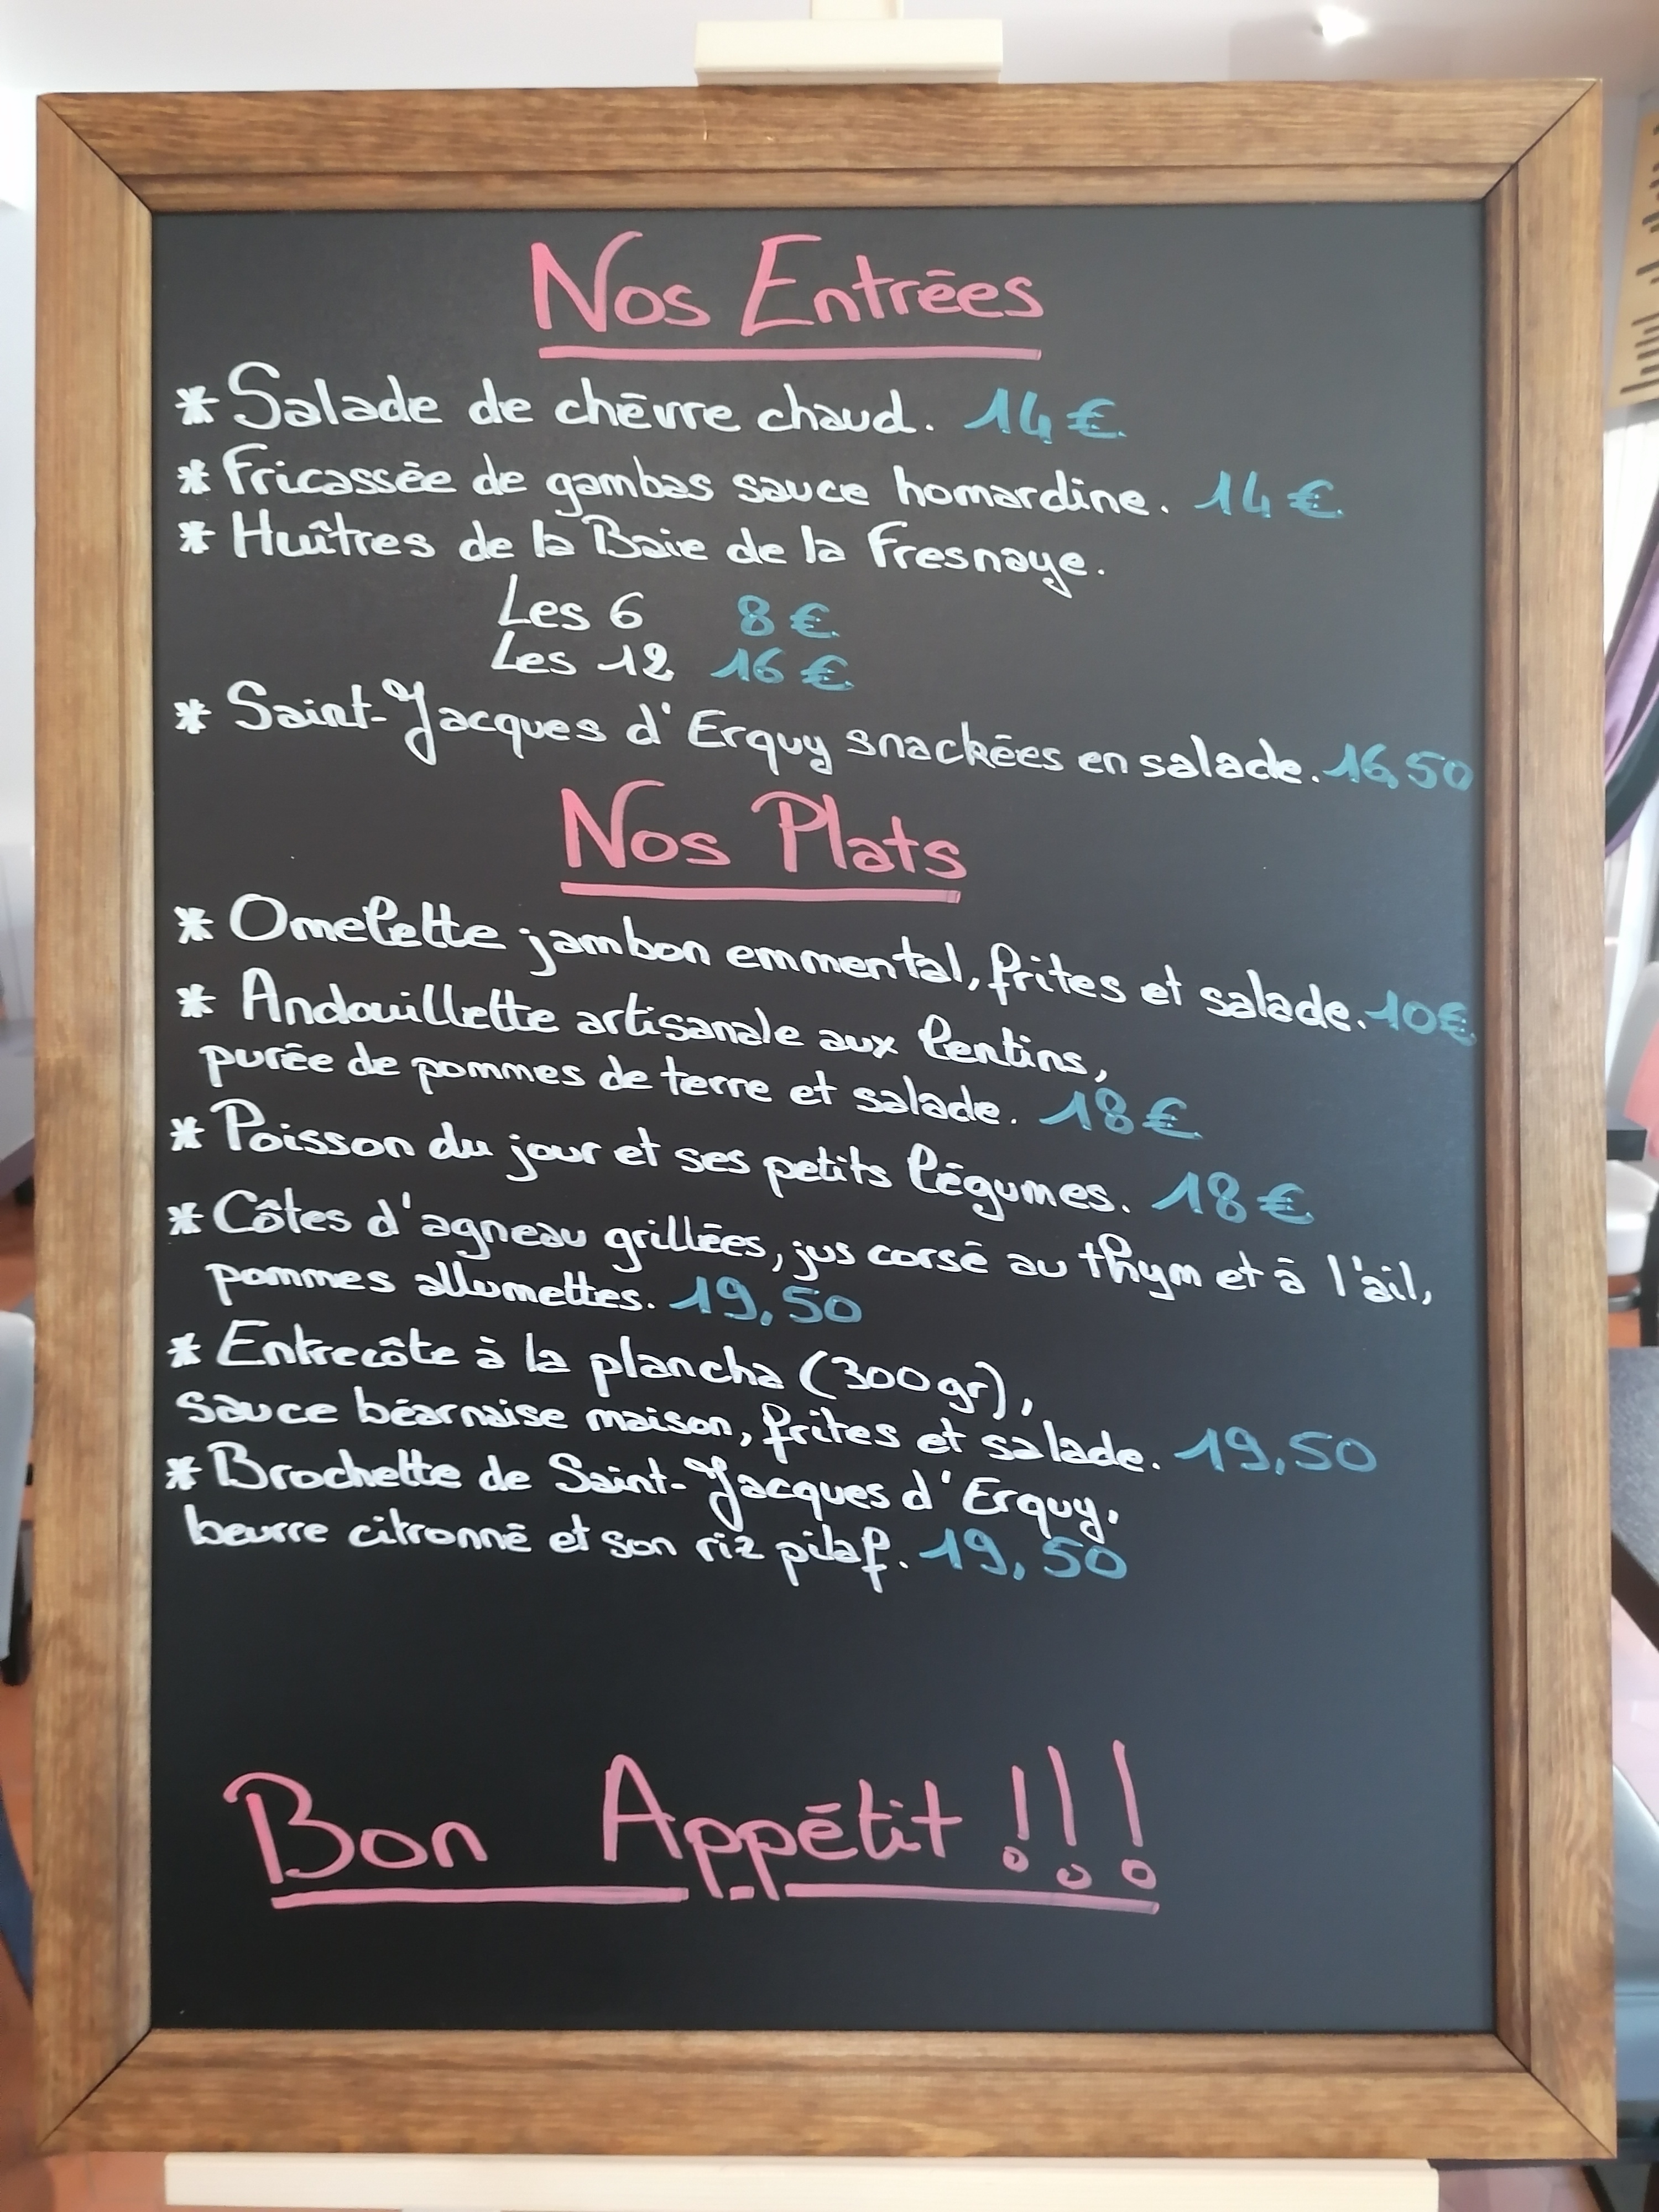 Nos Entrées
* Salade de chèvre chaud. 14€
* Fricassée de gambas sauce homardine. 14€
* Huîtres de la Baie de la Fresnaye.
Les 6 8€
Les 12 16€
* Saint-Jacques d'Erquy snackées en salade. 16,50
Nos Plats
* Omelette jambon emmental, frites et salade. 10€
* Andouillette artisanale aux lentins,
purée de pommes de terre et salade. 18€
* Poisson du jour et ses petits légumes. 18€
* Côtes d'agneau grillées, jus corsé au thym et à l'ail,
pommes allumettes. 19,50
* Entrecôte à la plancha (300gr),
sauce béarnaise maison, frites et salade. 19,50
* Brochette de Saint-Jacques d'Erquy,
beurre citronné et son riz pilaf. 19,50
Bon Appétit !!!